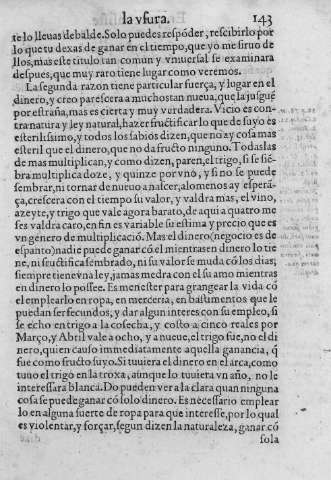 la vsura. 143
te lo lleuas debalde. Solo puedes respõder, rescibirlo por
lo que tu dexas de ganar en el tiempo, que yo me siruo de
llos, mas este titulo tan comun y vniuersal se examinara
despues, que muy raro tiene lugar como veremos.
La segunda razon tiene particular fuerça, y lugar en el
dinero, y creo parescera a muchos tan nueua, que la jusgué
por estraña, mas es cierta y muy verdadera. Vicio es con-
tra natura y ley natural, hazer fructificar lo que de suyo es
esterilissimo, y todos los sabios dizen, que no ay cosa mas
esteril que el dinero, que no da fructo ninguno. Todas las
de mas multiplican, y como dizen, paren, el trigo, si se siẽ-
bra multiplica doze, y quinze por vno, y si no se puede
sembrar, ni tornar de nueuo a nascer, alomenos ay esperã-
ça, crescera con el tiempo su valor, y valdra mas, el vino,
azeyte, y trigo que vale agora barato, de aqui a quatro me
ses valdra caro, en fin es variable su estima y precio que es
vn género de multiplicació. Mas el dinero (negocio es de
espanto) nadie puede ganar có el mientras en dinero lo tie
ne, ni fructifica sembrado, ni su valor se muda có los dias;
siempre tiene vna ley, jamas medra con el su amo mientras
en dinero lo possee. Es menester para grangear la vida có
el emplearlo en ropa, en merceria, en bastimentos que le
puedan ser fecundos, y dar algun interes con su empleo, si
se echo en trigo a la cosecha, y costo a cinco reales por
Março, y Abril vale a ocho, y a nueue, el trigo fue, no el di
nero, quien causo immediatamente aquella ganancia, q̃
fue como fructo suyo. Si tuuiera el dinero en el arca, como
tuuo el trigo en la troxa, aunque lo tuuiera vn año, no le
interessara blanca. Do pueden ver a la clara quan ninguna
cosa se puede ganar có solo dinero. Es necessario emplear
lo en alguna suerte de ropa para que interesse, por lo qual
es violentar, y forçar, segun dizen la naturaleza, ganar có
sola